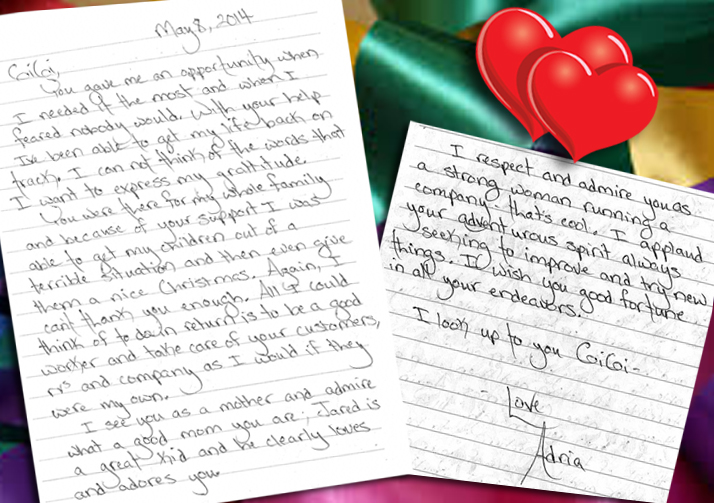 May 8, 2014
GiGi,
You gave me an opportunity when
I needed it the most and when I
feared nobody would. With your help
I've been able to get my life back on
track. I can not think of the words that
I want to express my gratitude.
You were there for my whole family
and because of your support I was
able to get my children out of a
terrible situation and then even give
them a nice Christmas. Again, I
can't thank you enough. All I could
think of to do in return is to be a good
worker and take care of your customers,
rv's and company as I would if they
were my own.
I see you as a mother and admire
what a good mom you are; Jared is
a great kid and he clearly loves
and adores you.
I respect and admire you as
a strong woman running a
company - that's cool. I applaud
your adventurous spirit always
seeking to improve and try new
things. I wish you good fortune
in all your endeavors.
I look up to you GiGi -
- Love
Adria